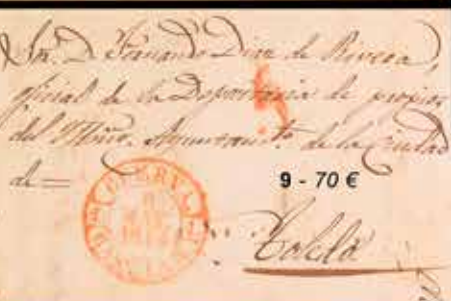 Sor. D. Fernando Diez de Rivera,
oficial de la Depositaria de propios
del Ylltre. Ayuntamto. de la Ciudad
de =
9 - 70 €
Toledo